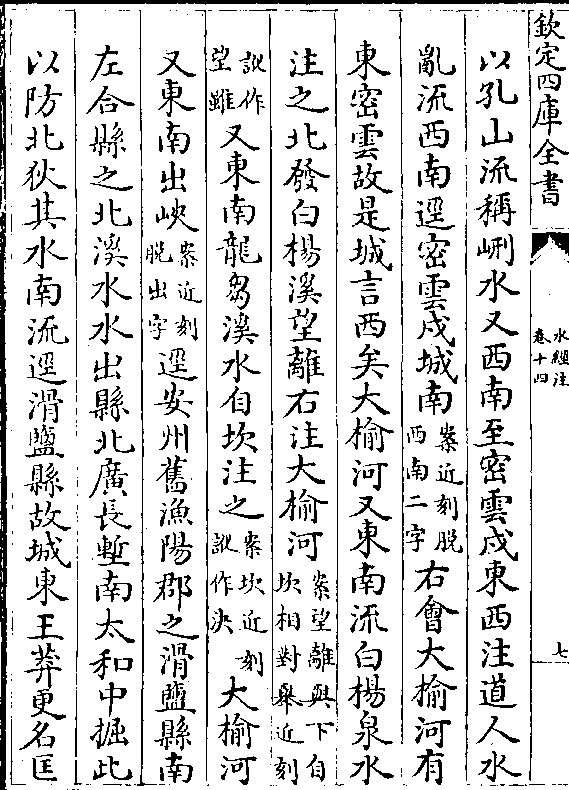 欽定四庫全書
水經注
卷十四
七
以孔山流稱峢水又西南至密雲戍東西注道人水
亂流西南逕密雲戍城南案近刻脫西南二字右會大榆河有
東密雲故是城言西矣大榆河又東南流白楊泉水
注之北發白楊溪望離右注大榆河案望離與下自坎相對舉近刻
訛作望雖又東南龍芻溪水自坎注之案坎近刻訛作決大榆河
又東南出峽案近刻脫出字逕安州舊漁陽郡之滑鹽縣南
左合縣之北溪水水出縣北廣長塹南太和中掘此
以防北狄其水南流逕滑鹽縣故城東王莽更名匡